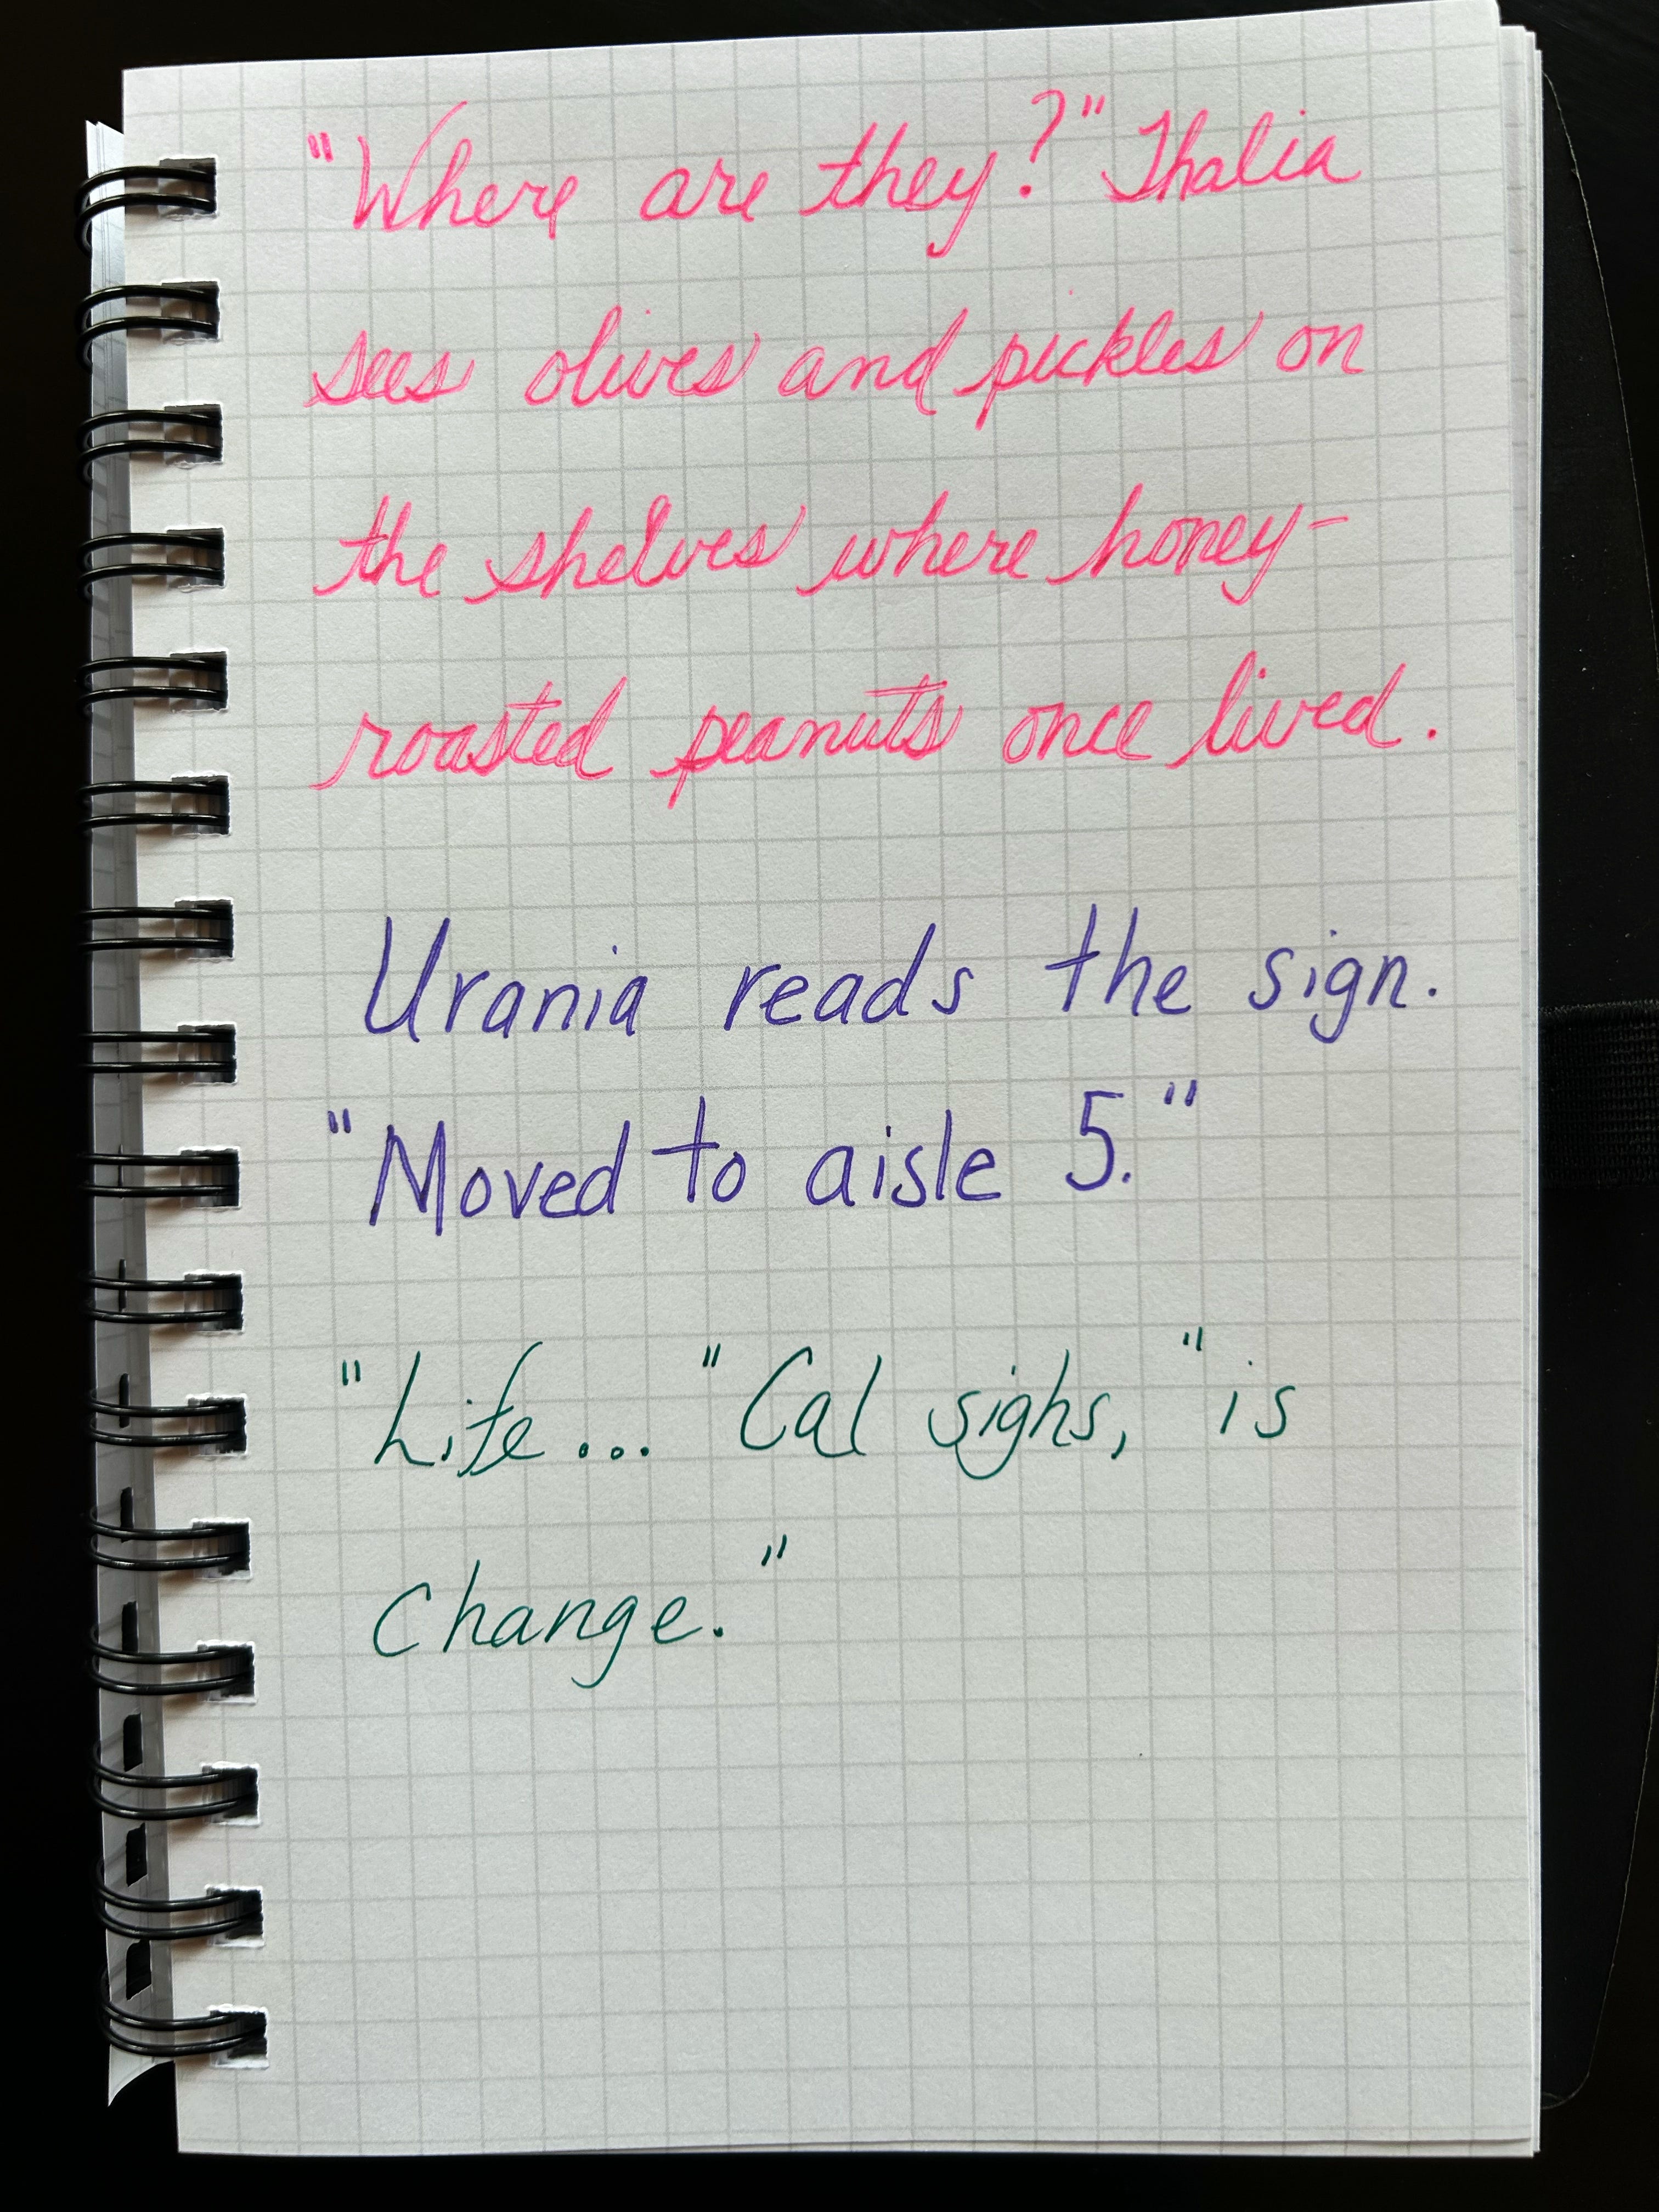 "Where are they?" Thalia
sees olives and pickles on
the shelves where honey-
roasted peanuts once lived.
Urania reads the sign.
"Moved to aisle 5."
"Life... "Cal sighs, "is
change."